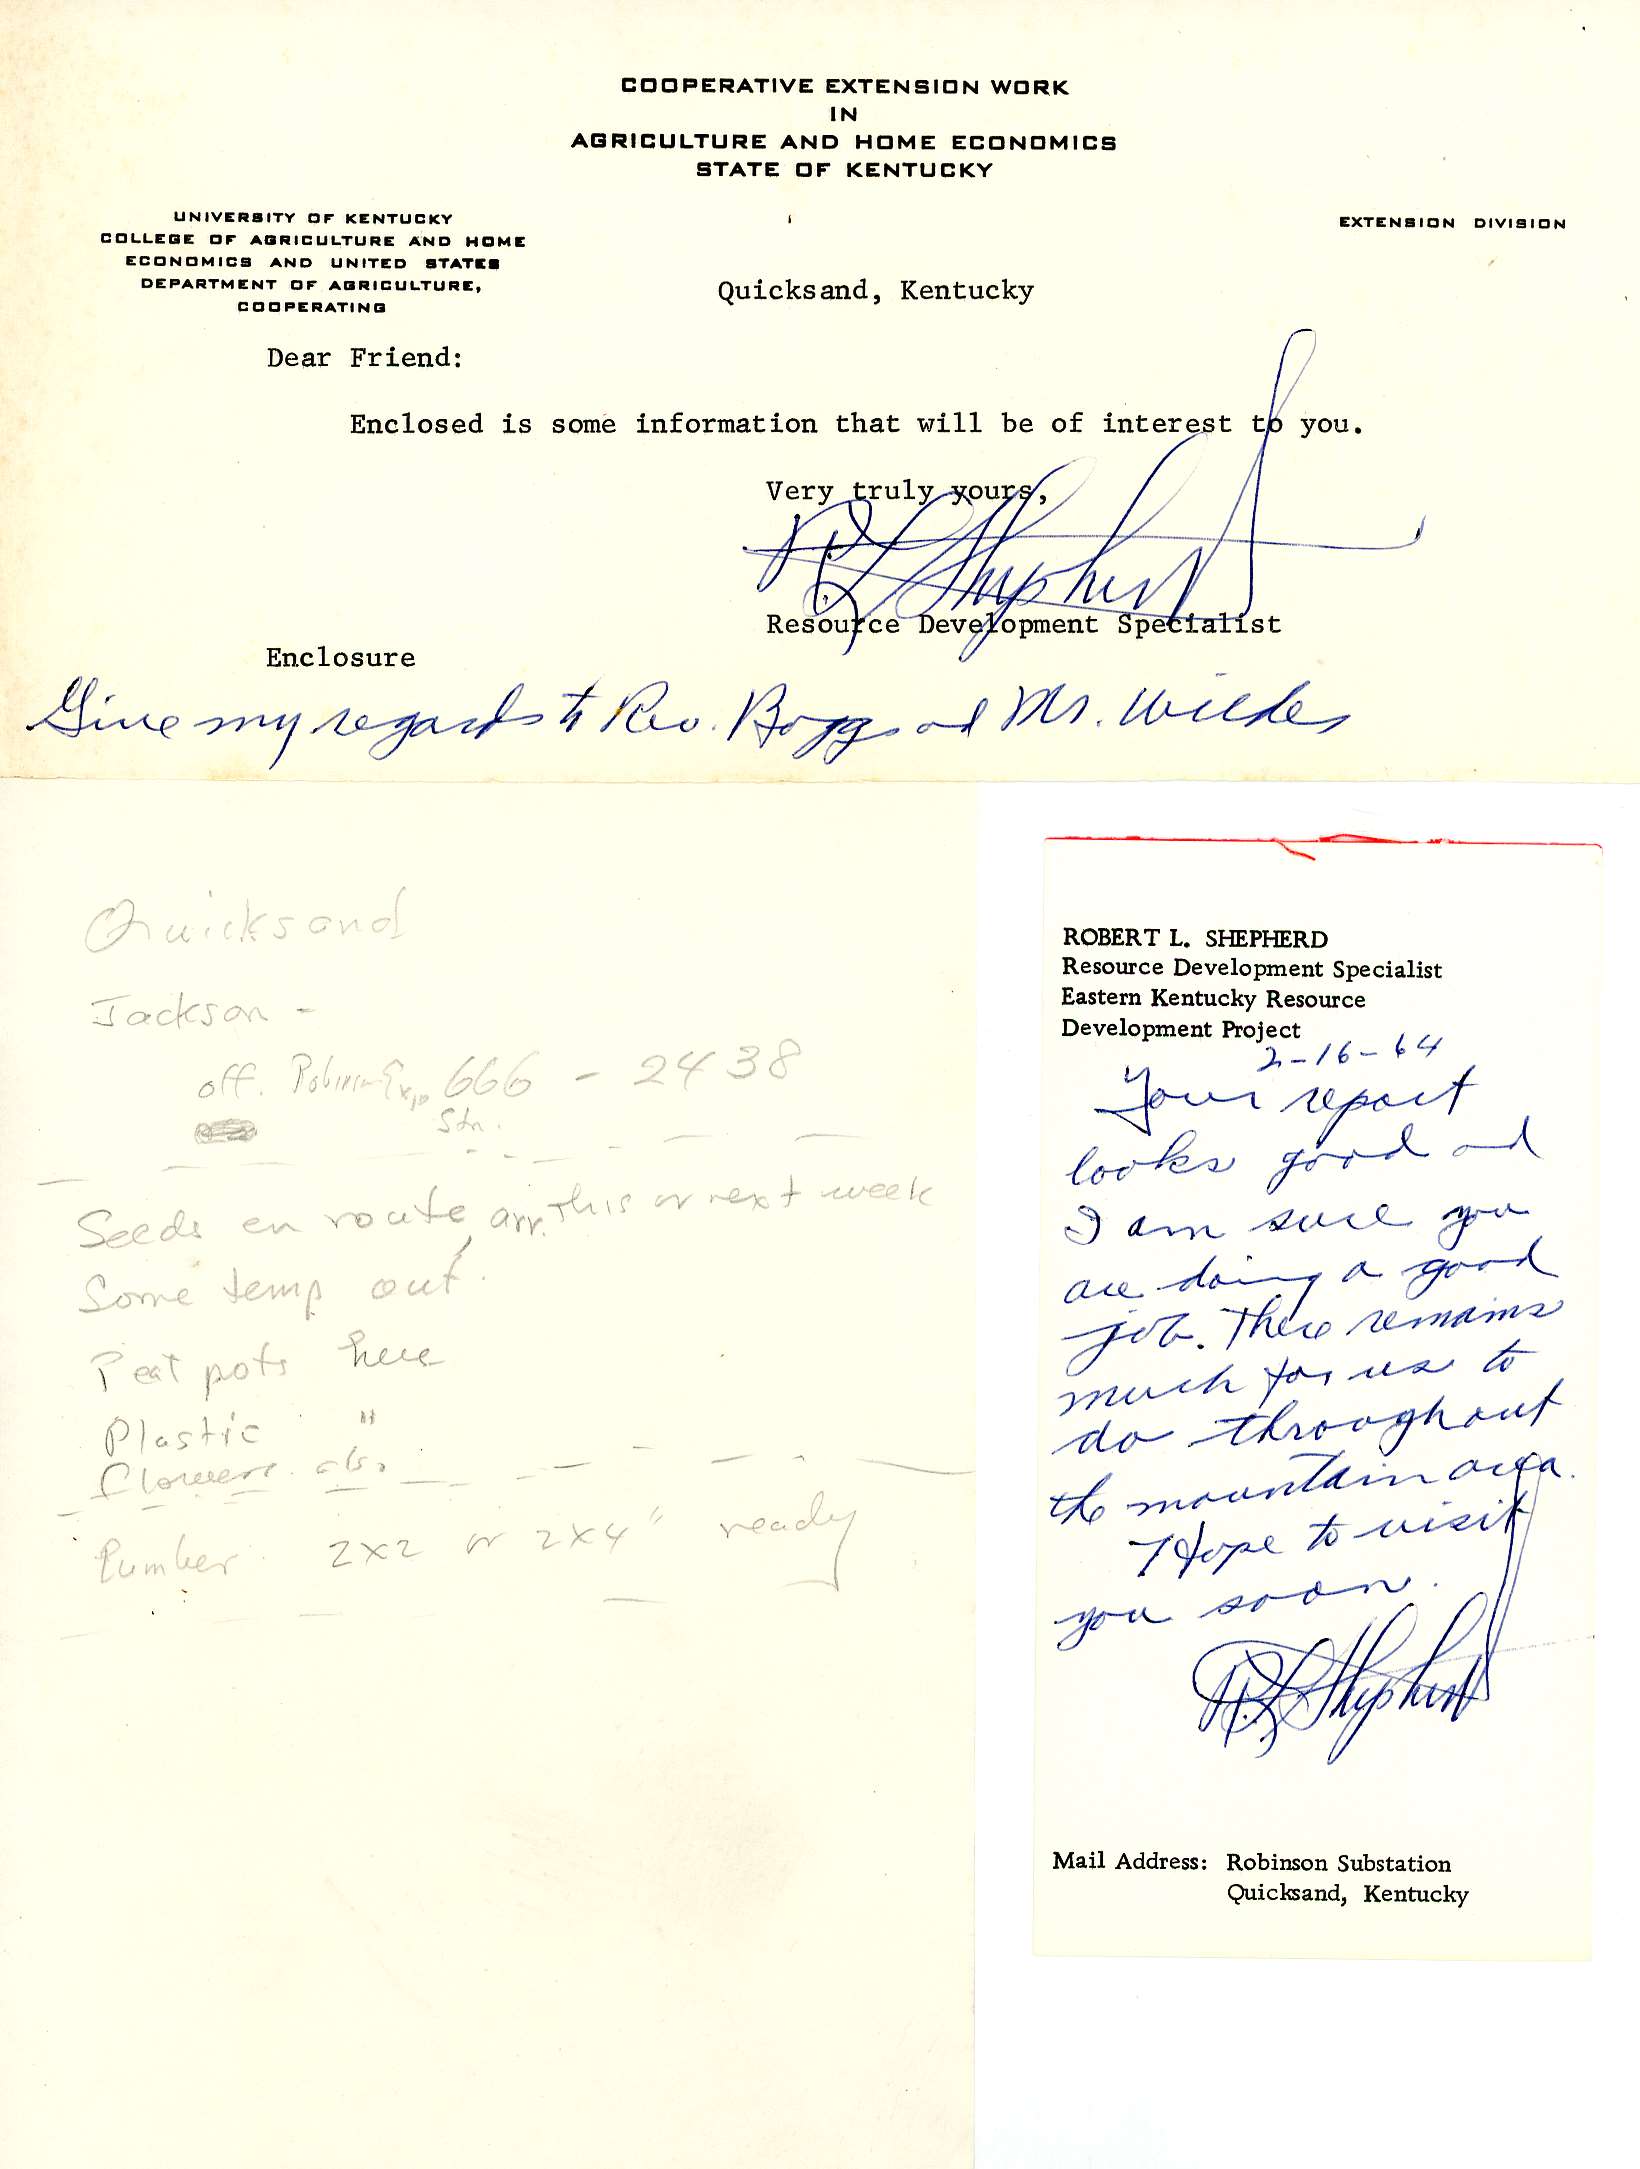 COOPERATIVE EXTENSION WORK
IN
AGRICULTURE AND HOME ECONOMICS
STATE OF KENTUCKY
UNIVERSITY OF KENTUCKY
COLLEGE OF AGRICULTURE AND HOME
ECONOMICS AND UNITED STATES
DEPARTMENT OF AGRICULTURE,
COOPERATING
EXTENSION DIVISION
Quicksand, Kentucky
Dear Friend:
Enclosed is some information that will be of interest to you.
Very truly yours,
R L Shepherd
Resource Development Specialist
Enclosure
Give my regards to Rev. Boggs and Mr.
Quicksand
Jackson -
off. Robinson Exp 666 - 2438
Stn.
Seeds en route, arr. This or next week
Some temp out.
Peat pots here
Plastic "
Flowers also
Lumber 2x2 or 2x4" ready
ROBERT L. SHEPHERD
Resource Development Specialist
Eastern Kentucky Resource
Development Project
2-16-64
Your report
looks good and
I am sure you
are doing a good
job. There remains
much for us to
do throughout
the mountain area.
Hope to visit
you soon.
R L Shepherd
Mail Address: Robinson Substation
Quicksand, Kentucky